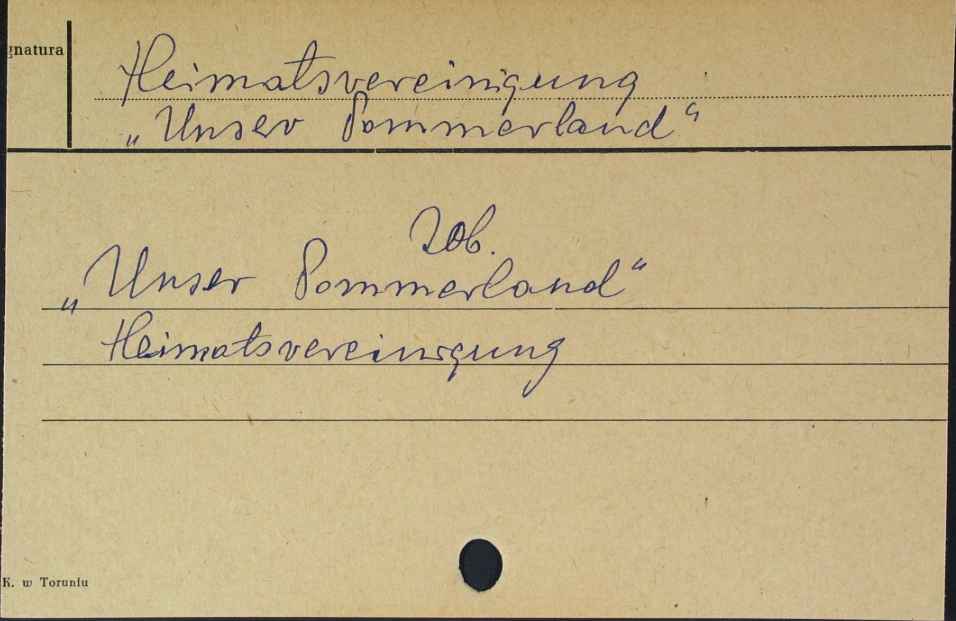 gnatura
Heimatsvereinigung
„Unser Pommerland“
Zob.
„Unser Pommerland“
Heimatsvereinigung
K. w Toruniu